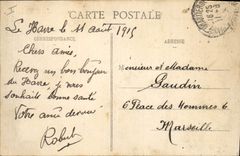 CARTE POSTALE
Le Havre le 11 août 1915
CORRESPONDANCE
Chers amis,
Recevez un bon bonjour
du Havre je vous
souhaite bonne santé
Votre ami dévoué
Robert
Monsieur et Madame
Gaudin
6 Place des Hommes 6
Marseille